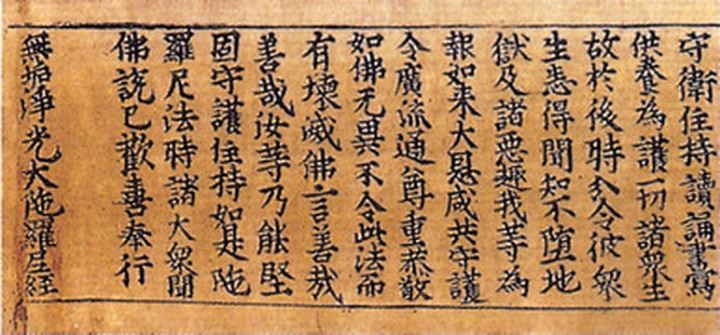 守衛住持讀誦書寫
供養為護一切諸衆生
故於後時分令彼衆
生悉得聞知不堕地
獄及諸惡趣我等為
報如来大恩咸共守護
令廣流通尊重恭敬
如佛无異不令此法而
有壞滅佛言善哉
善哉汝等乃能堅
固守護住持如是陁
羅尼法時諸大衆聞
佛說已歡喜奉行
無垢淨光大陁羅尼經